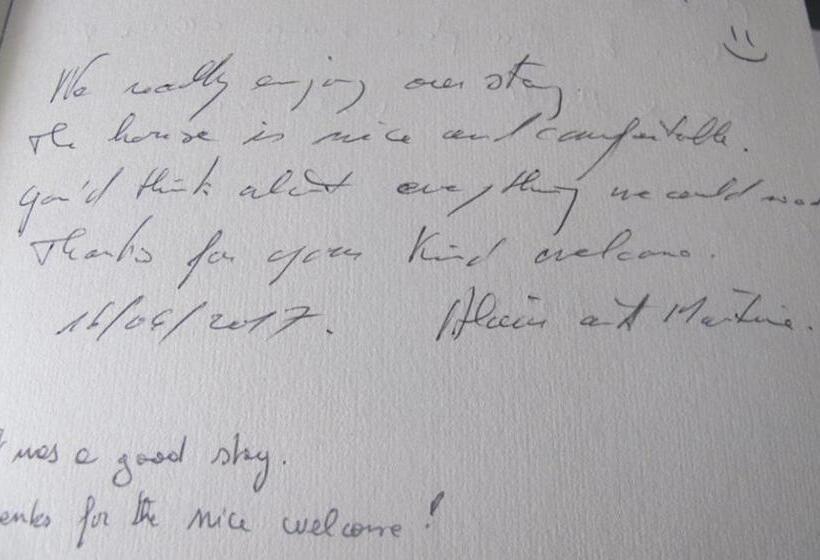 We really enjoy our stay
The house is nice and comfortable.
you'd think about everything we could
Thanks for your kind welcome.
16/06/2017. Alain and Martine.
was a good stay.
for the nice welcome !